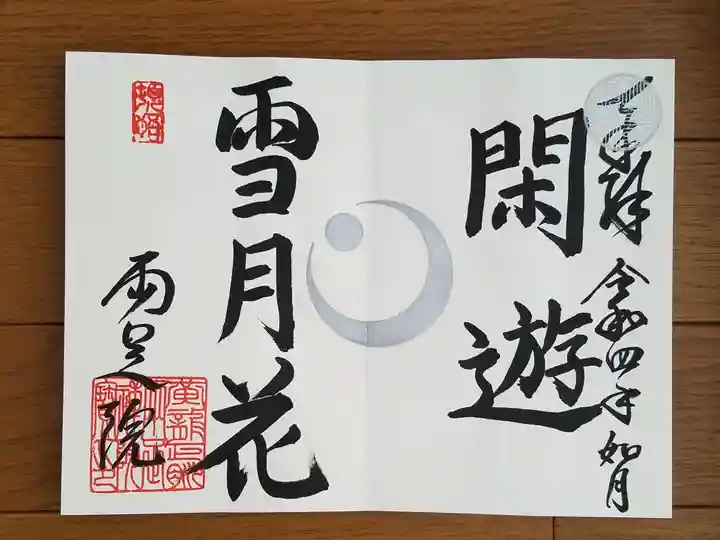 奉拝 令和四年 如月
閑遊
雪月花
両足院